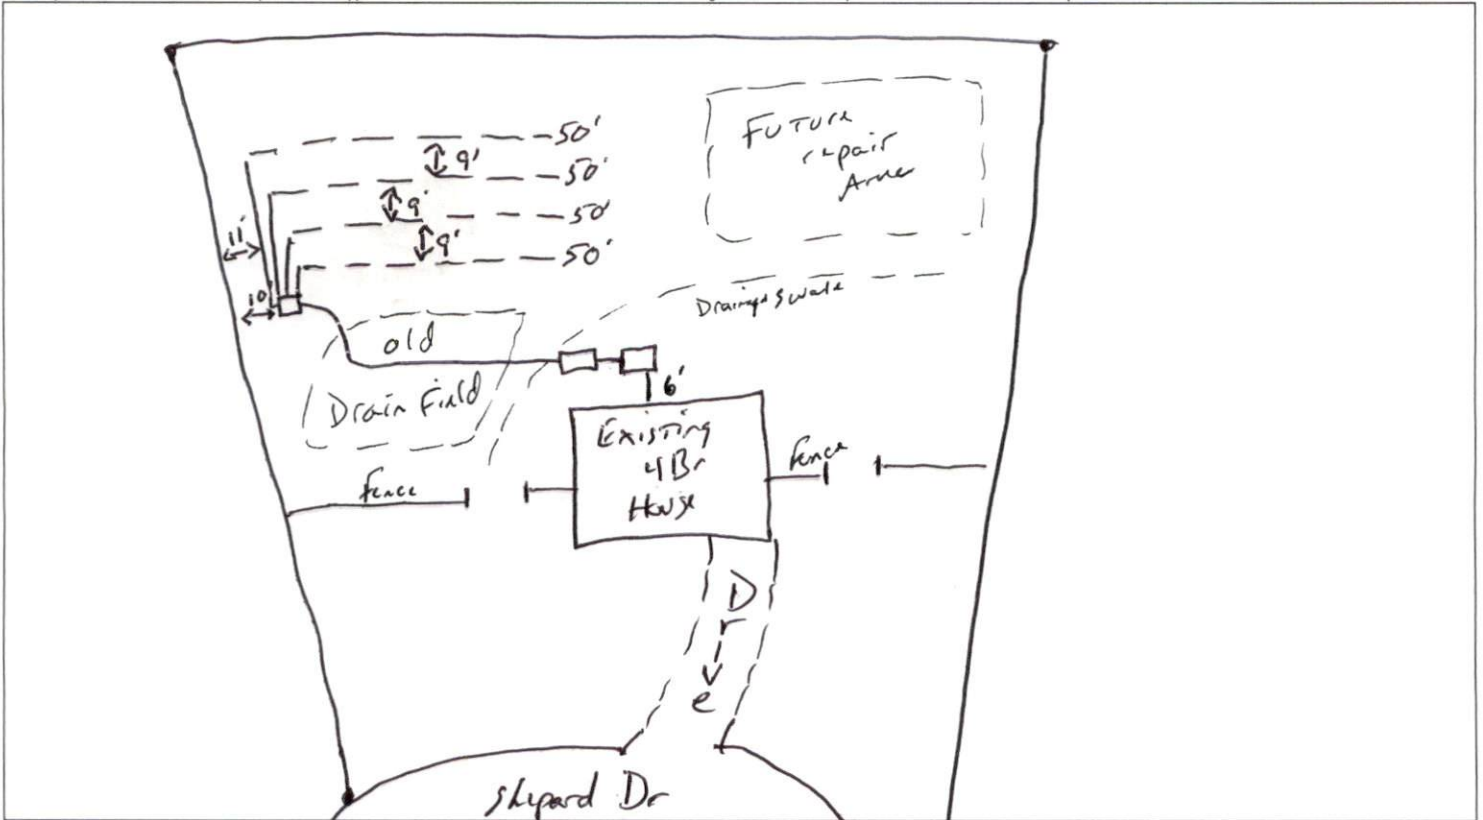 50'
9'
50'
9'
50'
9'
50'
11'
10'
Future
repair
Area
Drainage Swale
old
Drain Field
6'
Existing
4Br
House
Fence
Fence
Drive
Shepard Dr